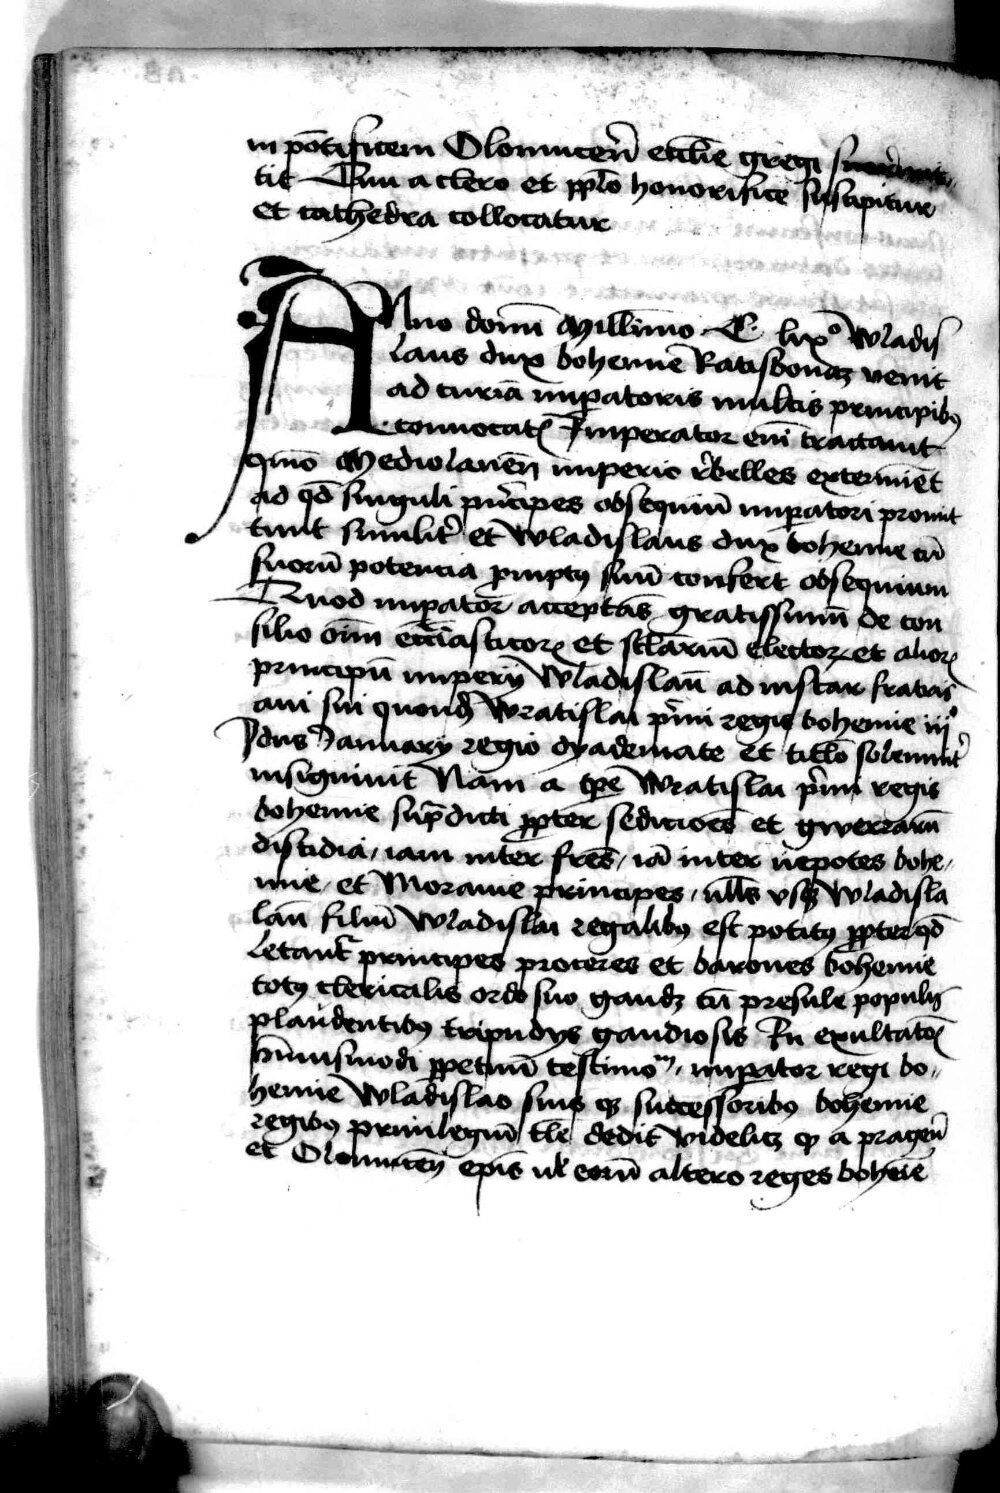 in pōtificem Olomucen̄ ecclīe gregi
tit Qui a clero et pp̄lo honorifice suscipitur
et cathedra collocatur
Anno domī Millīmo C lix° Wladis
laus dux bohemie Ratisbonaʒ venit
ad curiā imꝑatoris multis principibꝰ
conuocatꝭ Imperator em̄ tractauit
qm̄o Mediolanen̄ imperio rebelles extermīet
ad qd̄ singuli pn̄cipes obsequiū imꝑatori promit
tunt similitˀ et Wladislaus dux bohemie cū
suorū potencia ꝓmptꝰ suū confert obsequium
Quod imꝑator acceptās gratissimū de con
silio oīm eccīasticorꝝ et sclārium electorꝝ et aliorꝝ
principū imperij Wladislaū ad instar fratris
aui sui quondā Wratislai pˀmi regis bohemie iij°
Ydus Januarij regio dyademate et titlo solemnitˀ
insigniuit Nam a tꝑe Wratislai pˀmi regis
bohemie supˀdicti ꝓpter sediciōes et gwerrarū
discidia, iam inter fres̄, iā inter nepotes bohe,
mie, et Morauie principes, nlls̄ vsqꝫ Wladisla
laū filiū Wladislai regalibꝰ est potitꝰ ꝓpter qd̄
letantˀ principes proceres et barones bohemie
totꝰ clericalis ordo suo gaudꝫ cū presule populꝰ
plaudentibꝰ tripudijs gaudiosis In exultatōꝭ
huiusmodi ꝑpetuū testimoᵐ, imꝑator regi bo„
hemie Wladislao suis qꝫ successoribꝰ bohemie
regibꝰ priuilegiū tle dedit videlicꝫ ꝙ a pragen̄
et Olomucen̄ epis̄ ul̄ eorū altero reges bohemie